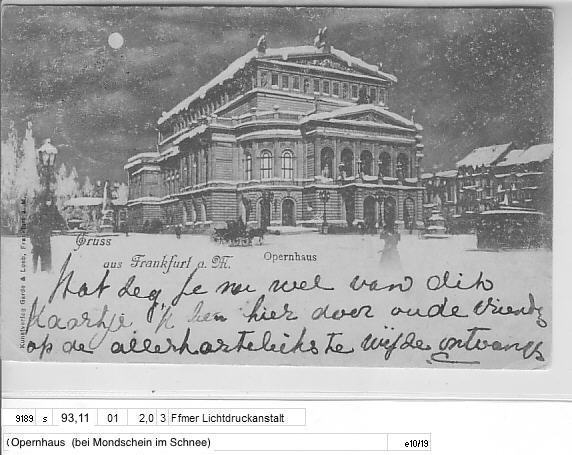 Gruss
aus Frankfurt a. M.
Opernhaus
Wat zeg je nu wel van dit
Kaartje 'k ben hier door oude vriendj
op de allerhartelickste wijze ontvangen
Kunstverlag Garde & Loeb, Frankfurt a. M.
9189 s 93,11 01 2,0 3 Ffmer Lichtdruckanstalt
(Opernhaus (bei Mondschein im Schnee) e10/19